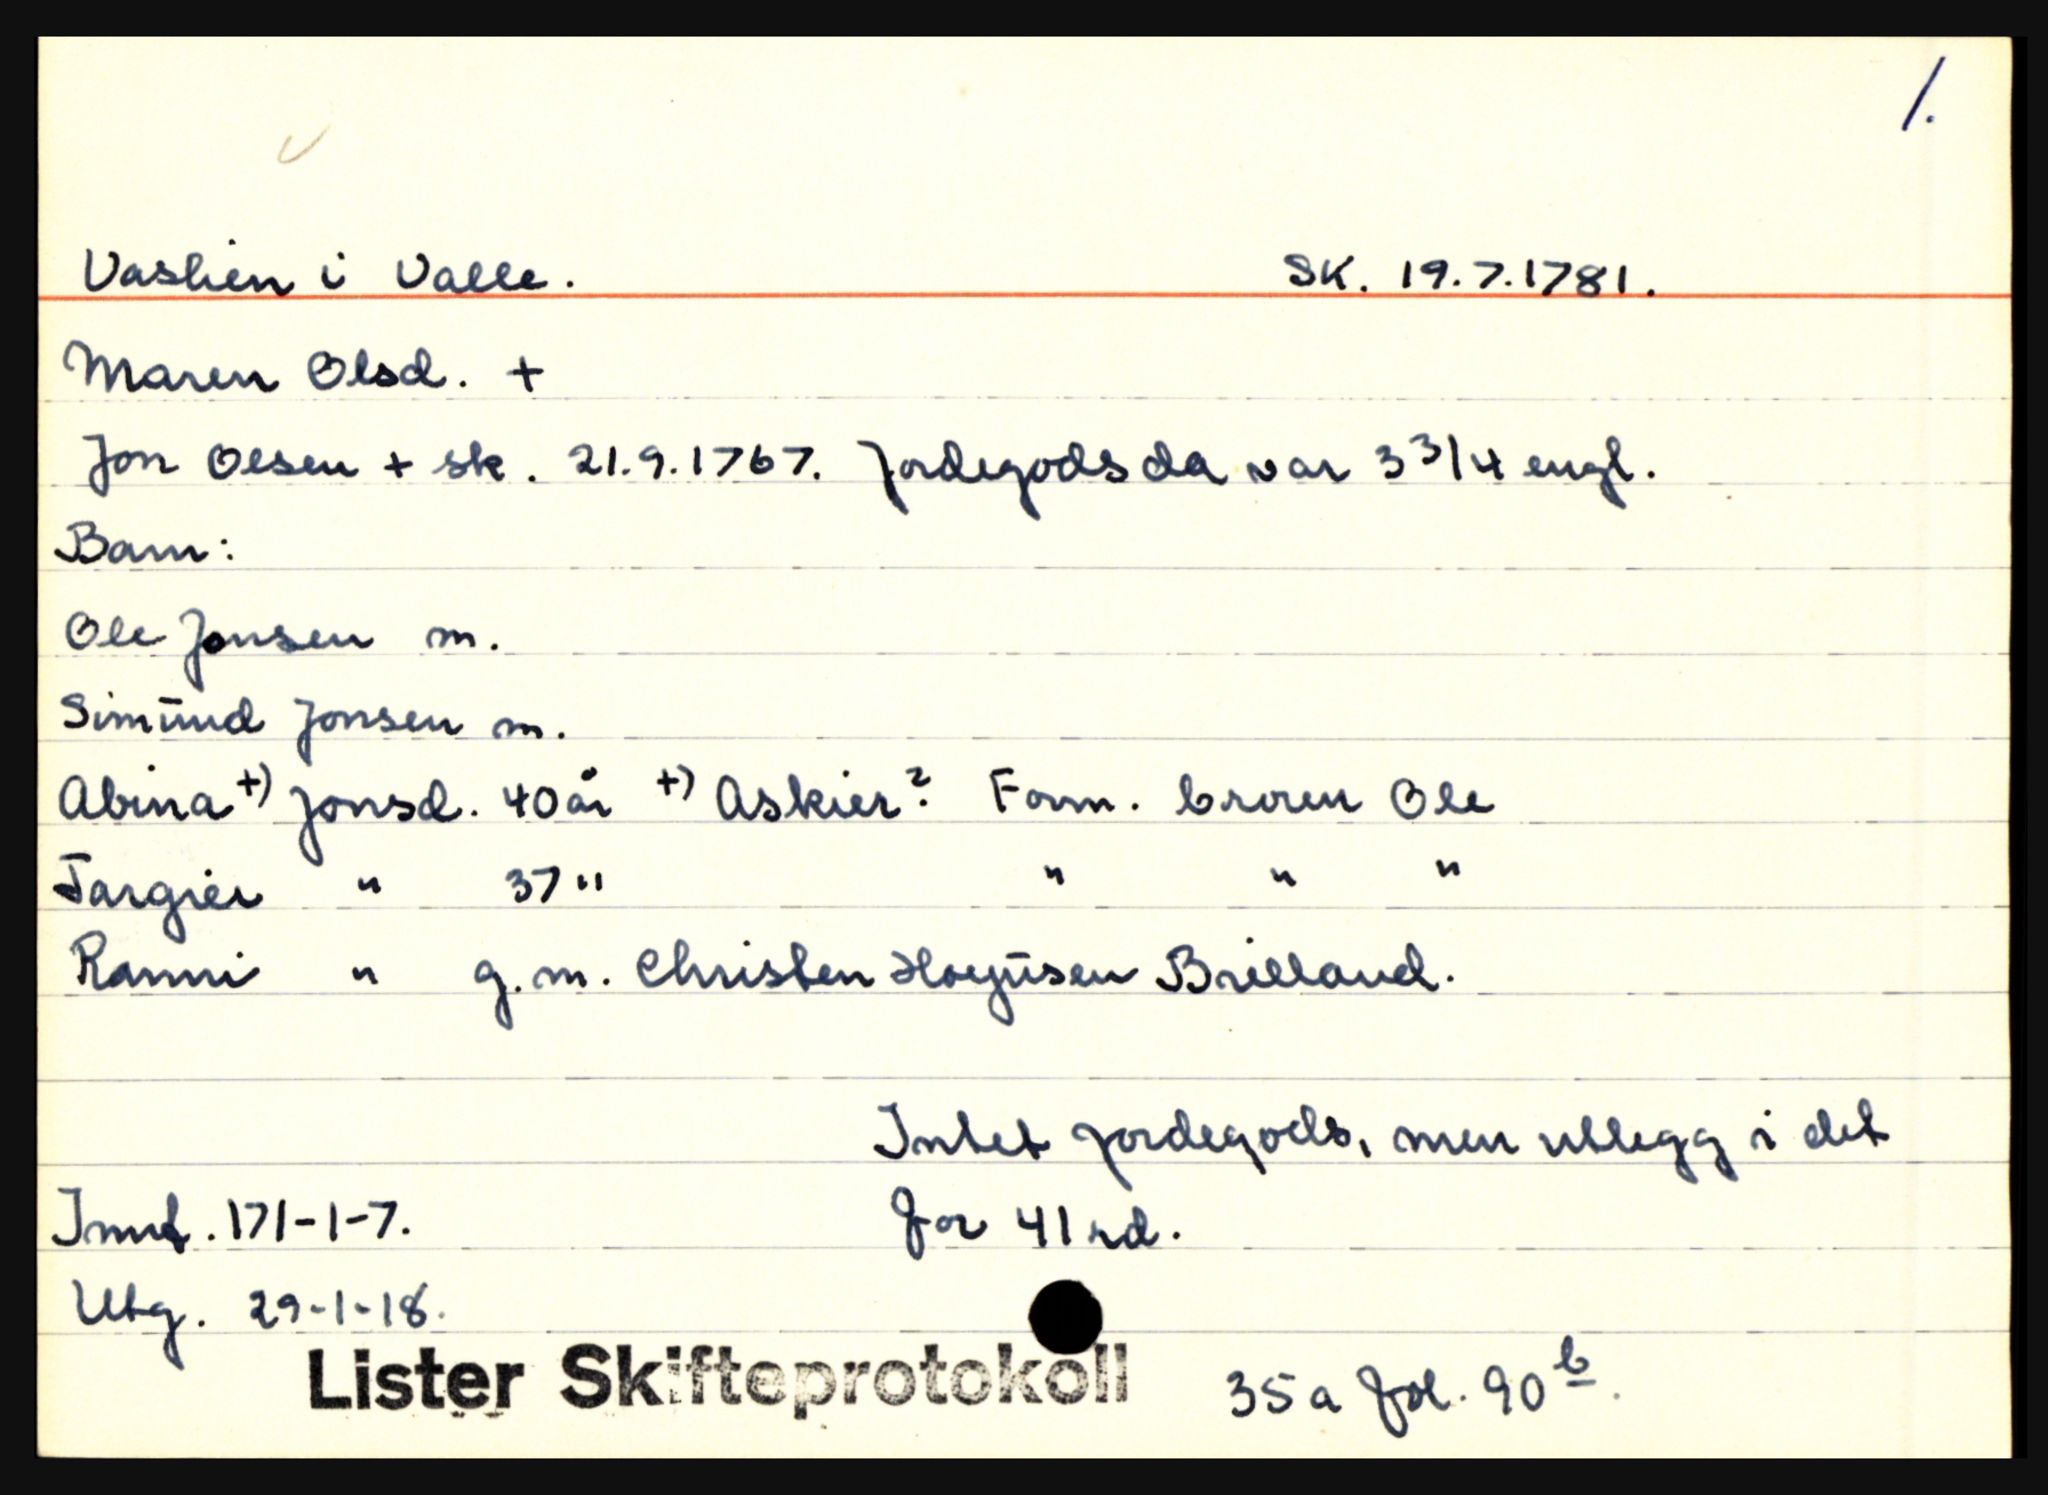 1.
Vaslien i Valle. SK. 19.7.1781.
Maren Olsd. +
Jon Olsen + sk. 21.9.1767. Jordegods da var 3 3/4 engl.
Barn:
Ole Jonsen m.
Simŭnd Jonsen m.
Abina +) Jonsd. 40 år +) Askier? Form. broren Ole
Targier " 37 " " " "
Ranni " g. m. Christen Brilland.
Intet jordegods, men utlegg i det
Innt. 171-1-7. for 41 rd.
Utg. 29-1-18.
Lister Skifteprotokoll 35a fol. 90 b.